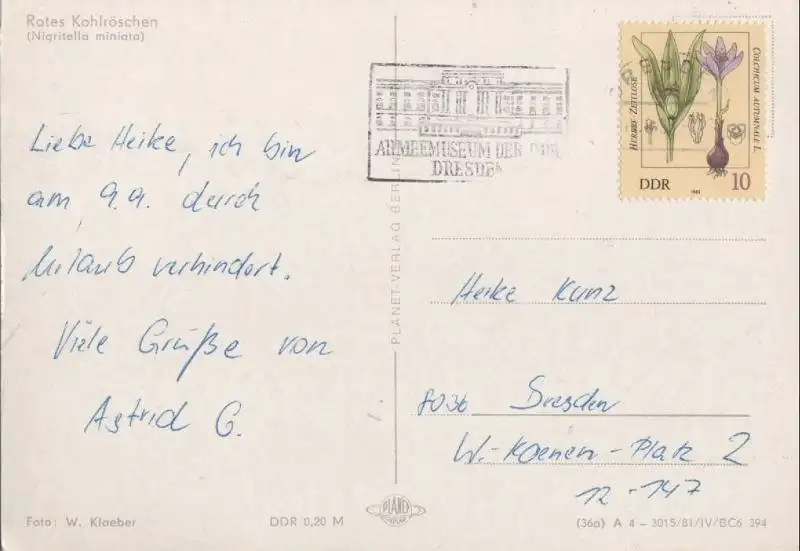 Rotes Kohlröschen
(Nigritella miniata)
Liebe Heike, ich bin
am 9.9. durch
Urlaub verhindert.
Viele Grüße von
Astrid G.
Foto: W. Klaeber
DDR 0,20 M
PLANET-VERLAG BERLIN
PLANET
VERLAG
ARMEEMUSEUM DER DDR
DRESDEN
HERBST-ZEITLOSE
COLCHICUM AUTUMNALE L.
DDR 1982 10
Heike Kunz
8036 Dresden
W.-Koenen-Platz 2
12-147
(36a) A 4 – 3015/81/IV/BC6 394